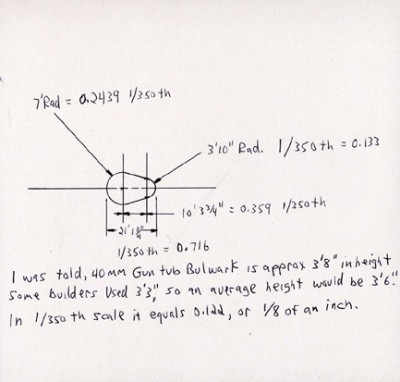 7' Rad = 0.2439 1/350 th
3'10" Rad. 1/350th = 0.133
10' 3 3/4" = 0.359 1/350th
21' 1 3/4"
1/350th = 0.716
I was told, 40mm Gun tub Bulwark is approx 3'8" in height
some builders used 3'3", so an average height would be 3'6".
In 1/350 th scale it equals 0.122, or 1/8 of an inch.